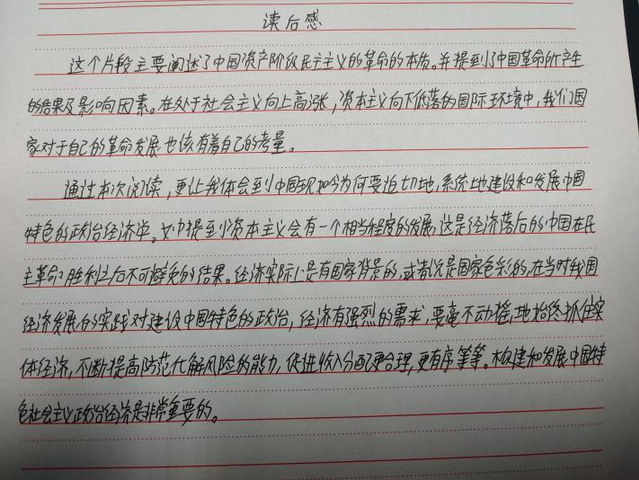 读后感
这个片段主要阐述了中国资产阶级民主主义的革命的本质。并提到了中国革命所产生
的结果及影响因素。在处于社会主义向上高涨,资本主义向下低落的国际环境中,我们国
家对于自己的革命发展也该有着自己的考量。
通过本次阅读,更让我体会到中国现如今为何要迫切地,系统地建设和发展中国
特色的政治经济学。文中提到资本主义会有一个相当程度的发展,这是经济落后的中国在民
主革命胜利之后不可避免的结果。经济实际上是有国家背景的,或者说是国家色彩的,在当时我国
经济发展的实践对建设中国特色的政治,经济有强烈的需求,要毫不动摇地始终抓住实
体经济,不断提高防范化解风险的能力,促进收入分配更合理,更有序等等。构建和发展中国特
色社会主义政治经济是非常重要的。